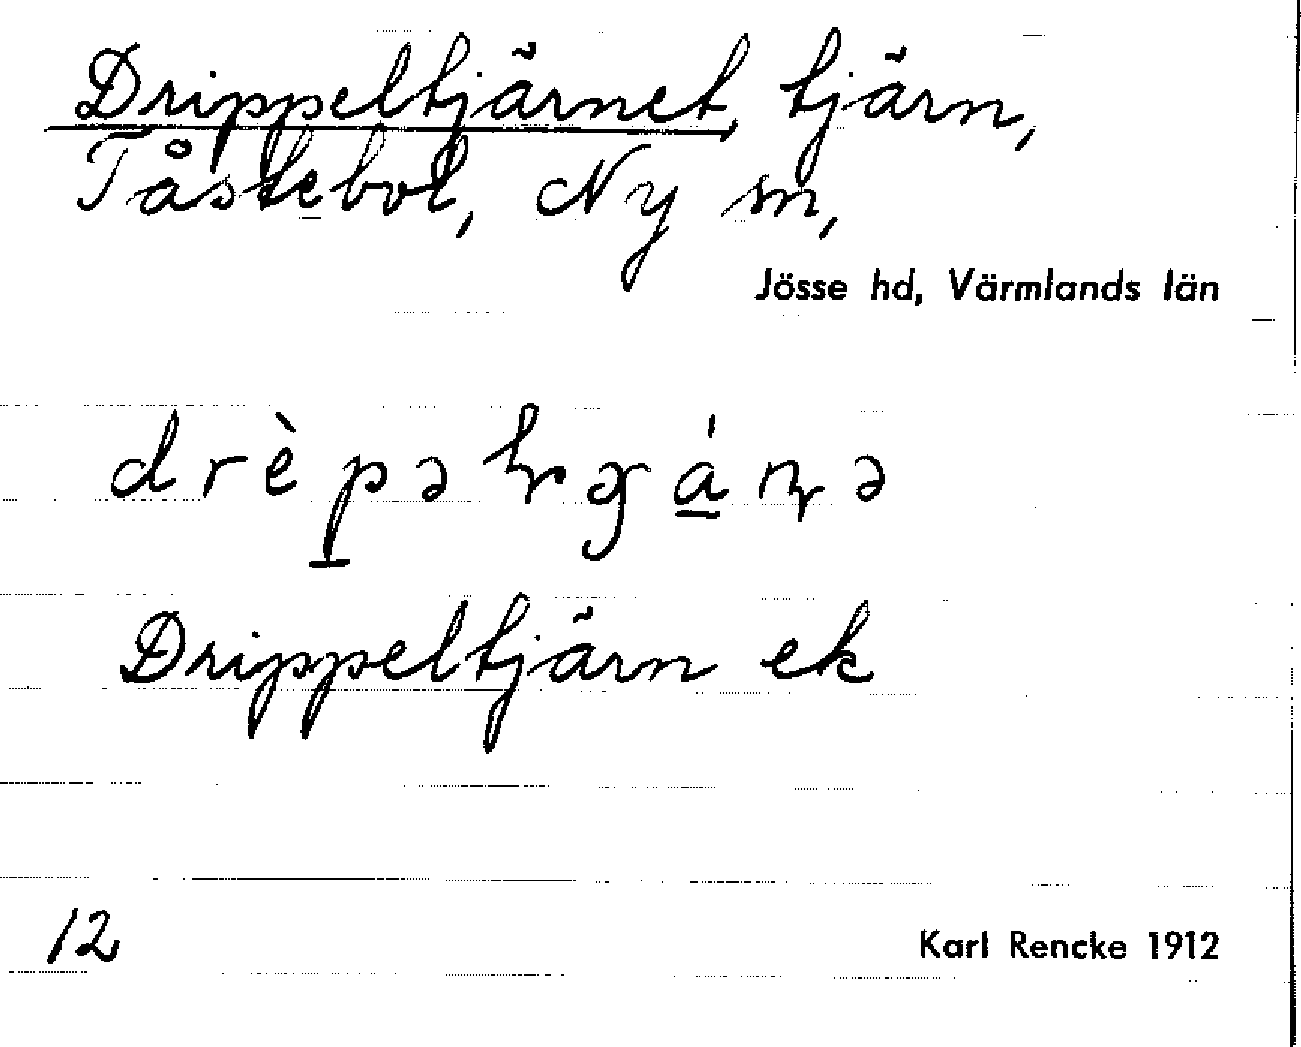 Drippeltjärnet, tjärn,
Tåstebol, Ny sn,
Jösse hd, Värmlands län
Drippeltjärn ek
12
Karl Rencke 1912